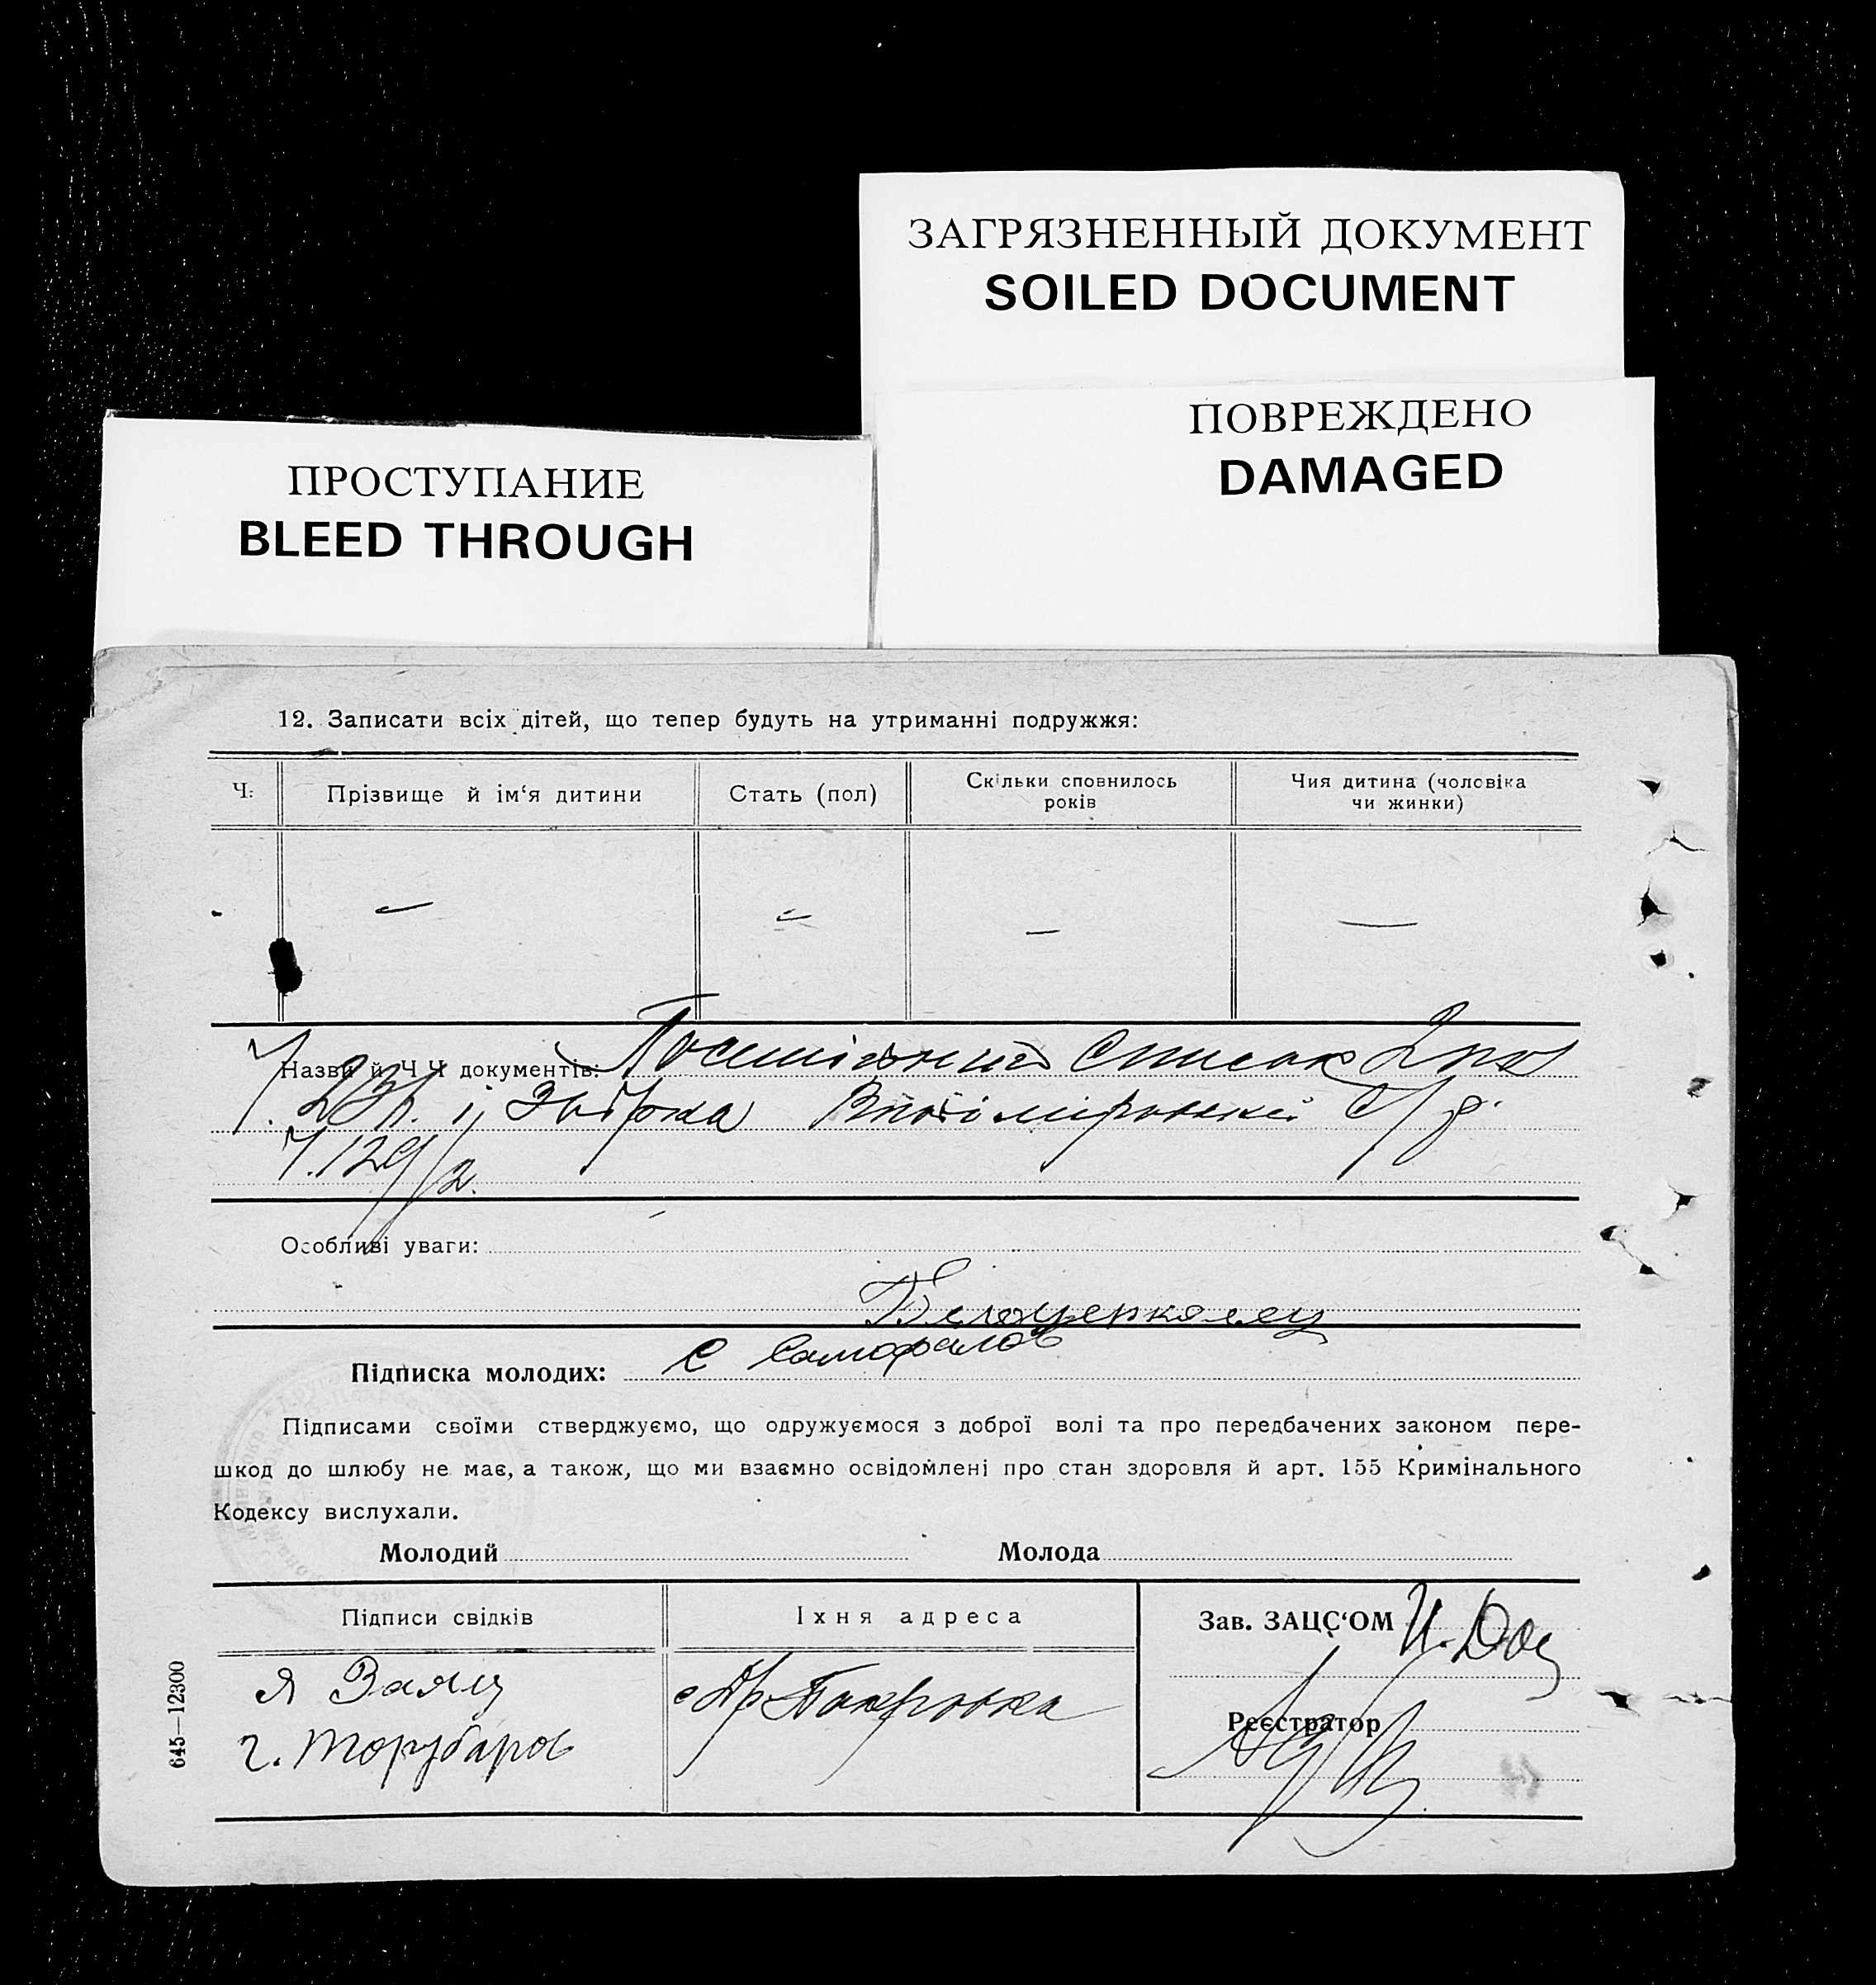 ЗАГРЯЗНЕННЫЙ ДОКУМЕНТ
SOILED DOCUMENT
ПОВРЕЖДЕНО
DAMAGED
ПРОСТУПАНИЕ
BLEED THROUGH
12. Записати всіх дітей, що тепер будуть на утриманні подружжя:
Ч:
Прізвище й ім‘я дитини
Стать (пол)
Скільки сповнилось
років
Чия дитина (чоловіка
чи жинки)
— — — —
Назви й Ч Ч документів: список
і
Ч. 129/2.
Особливі уваги:
Підписка молодих: С Самофалов
Підписами своїми стверджуємо, що одружуємося з доброї волі та про передбачених законом пере-
шкод до шлюбу не має, а також, що ми взаємно освідомлені про стан здоровля й арт. 155 Кримінального
Кодексу вислухали.
Молодий Молода
Підписи свідків
Їхня адреса
Зав. ЗАЦС‘ОМ
Я Заяц
Г. Торубаров
Реєстратор
645—12300